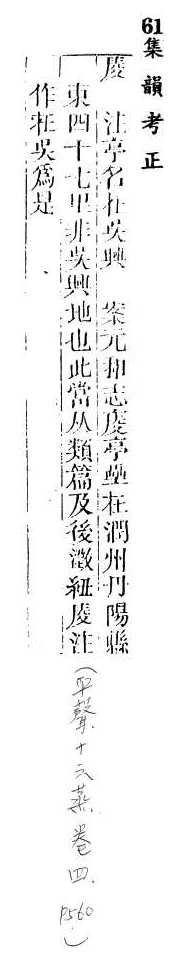 61集韻考正
庱 注亭名在吳興 案元和志庱亭壘在潤州丹陽縣
東四十七里非吳興地也此當从類篇及後澂紐庱注
作在吳爲是
(平聲十六蒸 卷四. P560)